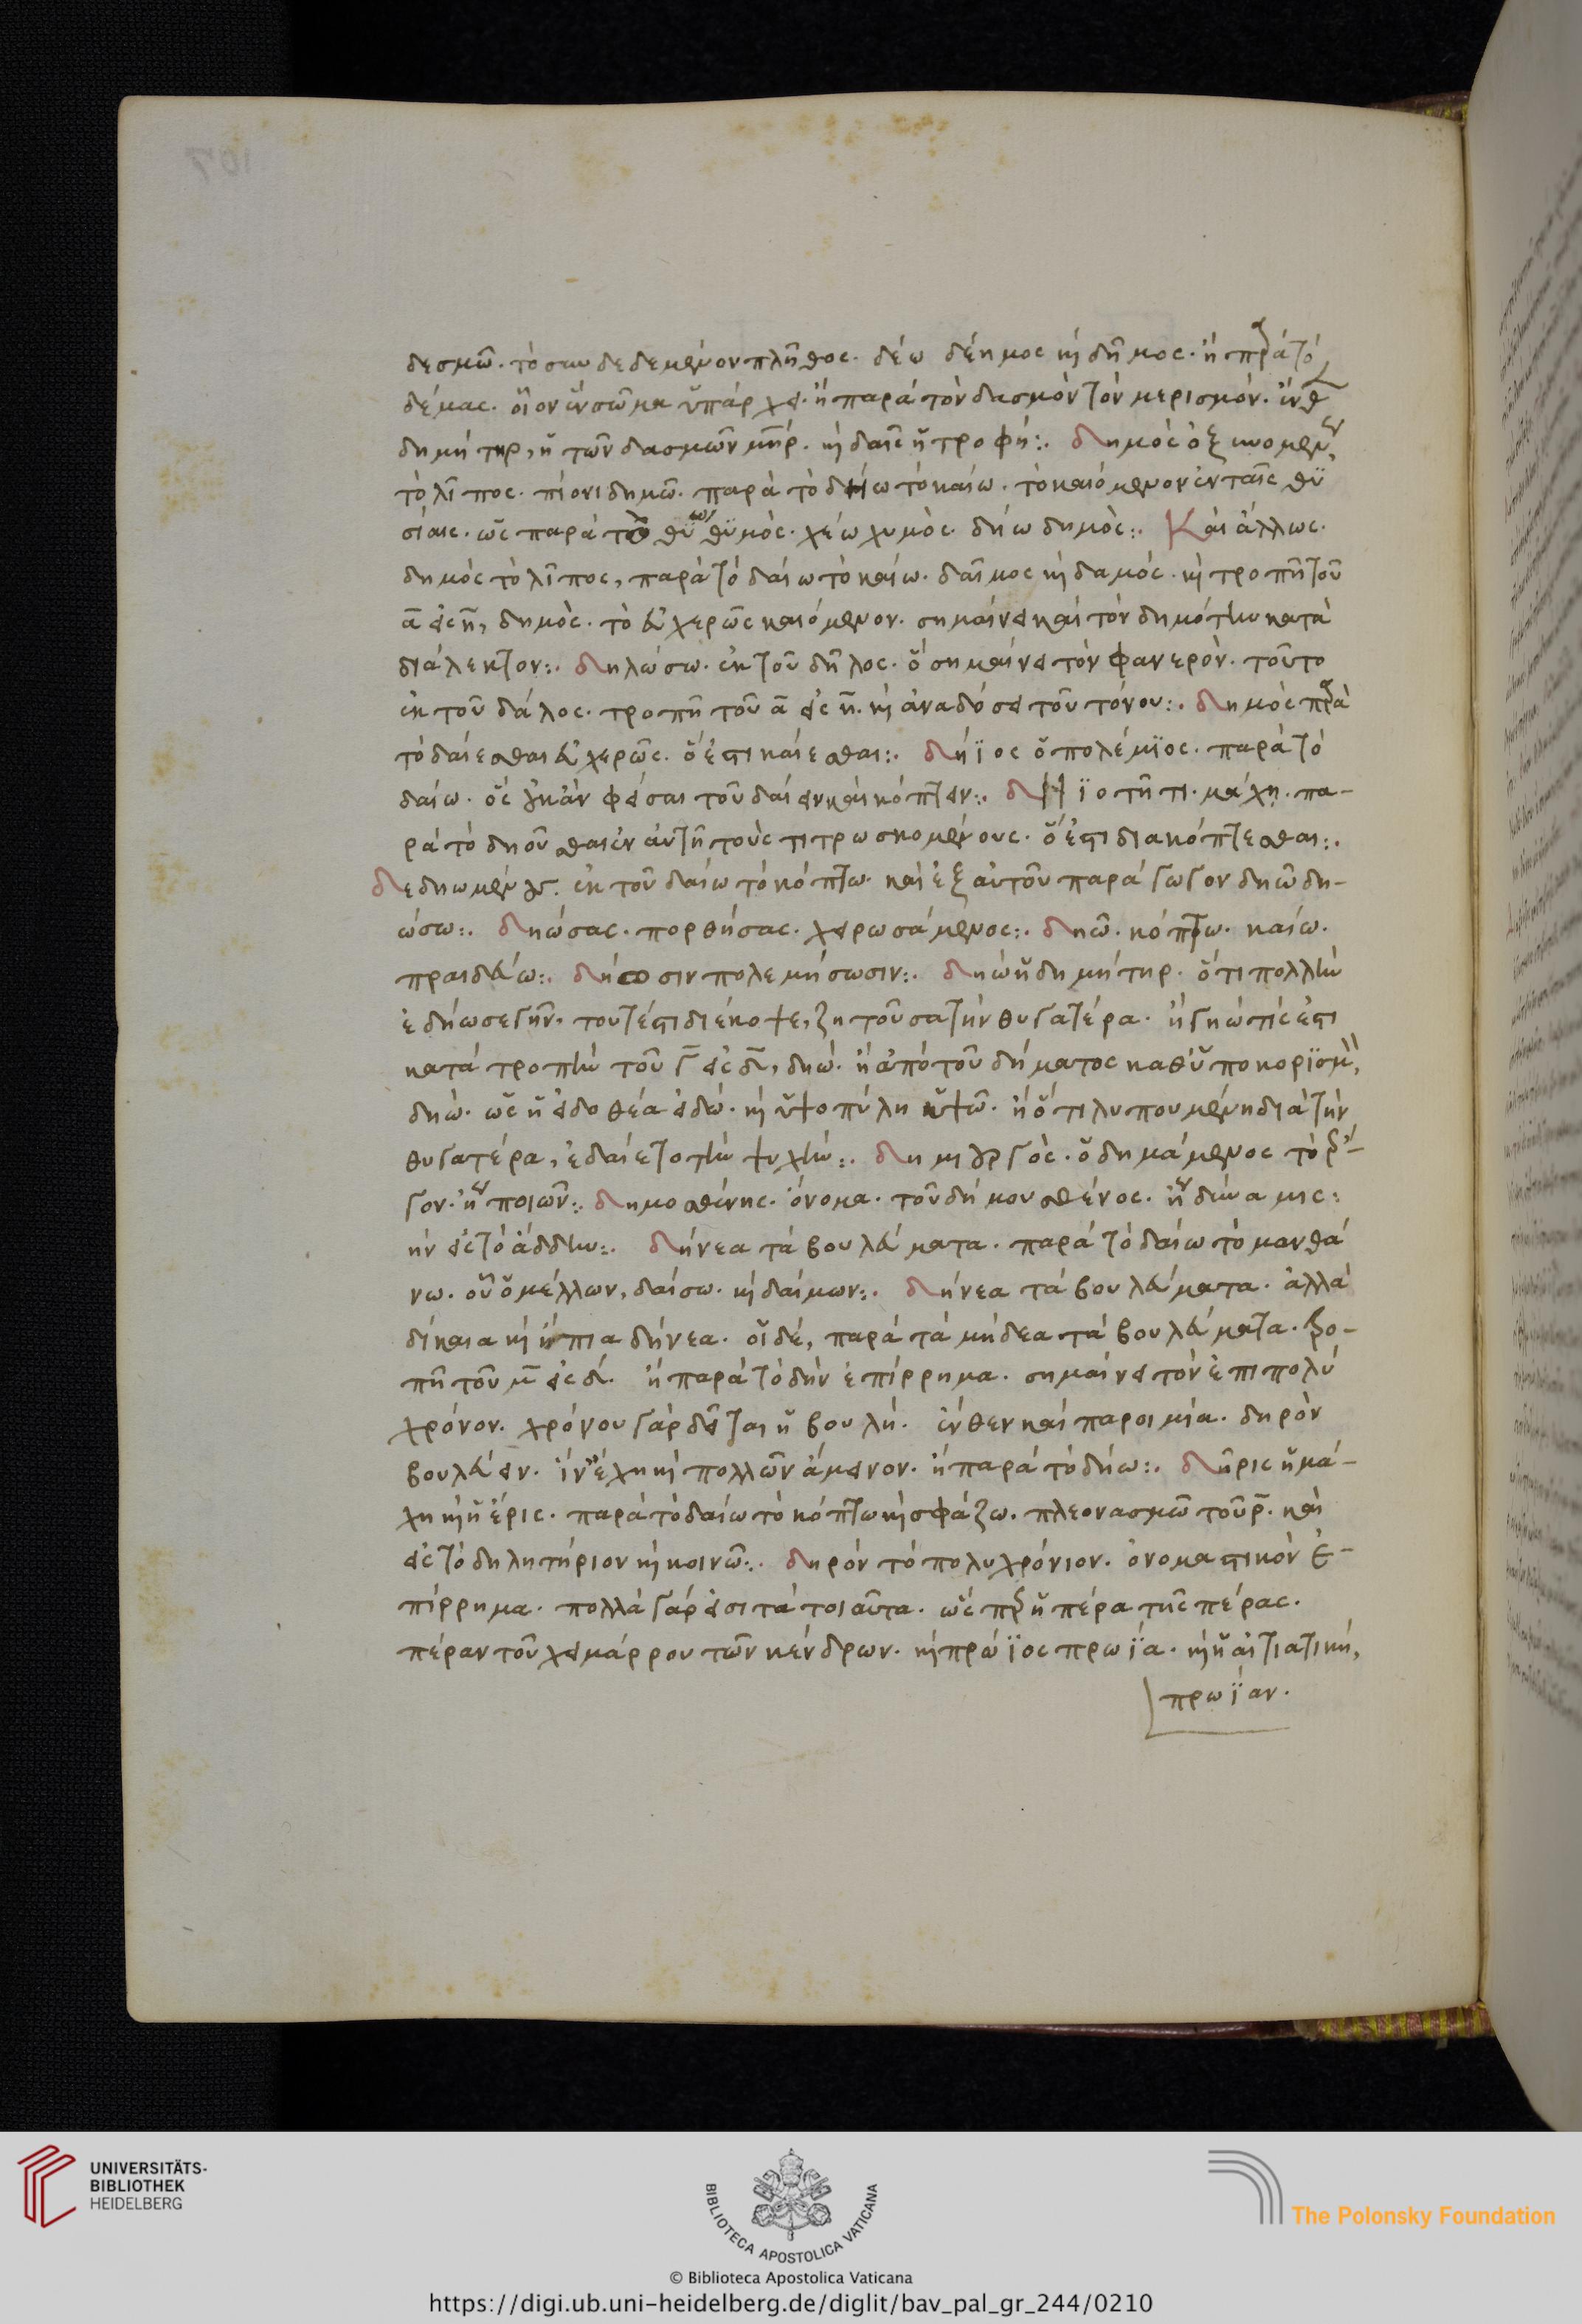 δεσμῶ. τὸ συνδεδεμένον πλῆθος. δέω δέημος καὶ δῆμος. ἢ παρὰ τὸ
δέμας. οἷον ἓν σῶμα ὑπάρχει. ἢ παρὰ τὸν δασμὸν τὸν μερισμόν. ἔνθεν
δημήτηρ, ἡ τῶν δασμῶν μήτηρ. καὶ δαὶς ἡ τροφή:. δημὸς ὀξυνομένως,
τὸ λῖπος. πίονι δημῶ. παρὰ τὸ δήω τὸ καίω. τὸ καιόμενον ἐν ταῖς θυ
σίαις. ὡς παρὰ τὸ θύω θυμός. χέω χυμός. δήω δημός:. Καὶ ἄλλως.
δημὸς τὸ λῖπος, παρὰ τὸ δαίω τὸ καίω. δαῖμος καὶ δαμός. καὶ τροπῆ τοῦ
α εἰς η, δημὸς. τὸ εὐχερῶς καιόμενον. σημαίνει καὶ τὸν δημότην κατὰ
διάλεκτον:. δηλώσω. ἐκ τοῦ δῆλος. ὃ σημαίνει τὸν φανερόν. τοῦτο
ἐκ τοῦ δάλος. τροπῆ τοῦ α εἰς η. καὶ ἀναδόσει τοῦ τόνου:. δημὸς παρὰ
τὸ δαίεσθαι εὐχερῶς. ὅ ἐστι καίεσθαι:. δήϊος ὁ πολέμϊος. παρὰ τὸ
δαίω. ὃς οὐκ ἂν φείσαι τοῦ δαίειν καὶ κόπτειν:. δηϊοτῆτι. μάχη. πα-
ρὰ τὸ δηοῦσθαι ἐν αὐτῆ τοὺς τιτρωσκομένους. ὅ ἐστι διακόπτεσθαι:.
δεδηωμένου. ἐκ τοῦ δαίω τὸ κόπτω. καὶ ἐξ αὐτοῦ παράγωγον δηῶ δη-
ώσω:. δηώσας. πορθήσας. χειρωσάμενος:. δηῶ. κόπτω. καίω.
πραιδεύω:. δήωσιν πολεμήσωσιν:. δηὼ ἡ δημήτηρ. ὅτι πολλὴν
ἐδήωσε γῆν. τουτέστι διέκοψε, ζητοῦσα τὴν θυγατέρα. ἢ γηώ τίς ἐστι
κατὰ τροπὴν τοῦ γ εἰς δ, δηώ. ἢ ἀπὸ τοῦ δήματος καθ' ὑποκορισμὸν,
δηώ. ὡς ἡ εἰδοθέα εἰδώ. καὶ ὑψοπύλη ὑψῶ. ἢ ὅτι λυπουμένη διὰ τὴν
θυγατέρα, ἐδαίετο τὴν ψυχήν:. δημιουργὸς. ὁ δημάμενος τὸ ἔρ-
γον. ἤγουν ποιῶν:. δημοσθένης. ὄνομα. τοῦ δήμου σθένος. ἤγουν δύναμις:
ἦν εἰς τὸ ἄδδην:. δήνεα τὰ βουλεύματα. παρὰ τὸ δαίω τὸ μανθά
νω. οὗ ὁ μέλλων, δαίσω. καὶ δαίμων:. δήνεα τὰ βουλεύματα. ἀλλὰ
δίκαια καὶ ἤπια δήνεα. οἱ δέ, παρὰ τὰ μήδεα τὰ βουλεύματα. τρο-
πῆ τοῦ μ εἰς δ. ἢ παρὰ τὸ δὴν ἐπίρρημα. σημαίνει τὸν ἐπιπολὺ
χρόνον. χρόνου γὰρ δεῖται ἡ βουλή. ἔνθεν καὶ παροιμία. δηρὸν
βουλεύειν. ἵν' ἔχη καὶ πολλῶν ἄμεινον. ἢ παρὰ τὸ δήω:. δῆρις ἡ μά-
χη καὶ ἡ ἔρις. παρὰ τὸ δαίω τὸ κόπτω καὶ σφάζω. πλεονασμῶ τοῦ ρ. καὶ
εἰς τὸ δηλητήριον καὶ κοινῶ:. δηρὸν τὸ πολυχρόνιον. ὀνοματικὸν ἐ-
πίρρημα. πολλὰ γάρ εἰσι τὰ τοιαῦτα. ὡς περ ἡ πέρα τῆς πέρας.
πέραν τοῦ χειμάρρου τῶν κένδρων. καὶ πρώϊος πρωΐα. καὶ ἡ αἰτιατική,
πρωΐαν.
107
UNIVERSITÄTS-
BIBLIOTHEK
HEIDELBERG
BIBLIOTECA APOSTOLICA VATICANA
The Polonsky Foundation
© Biblioteca Apostolica Vaticana
https://digi.ub.uni-heidelberg.de/diglit/bav_pal_gr_244/0210